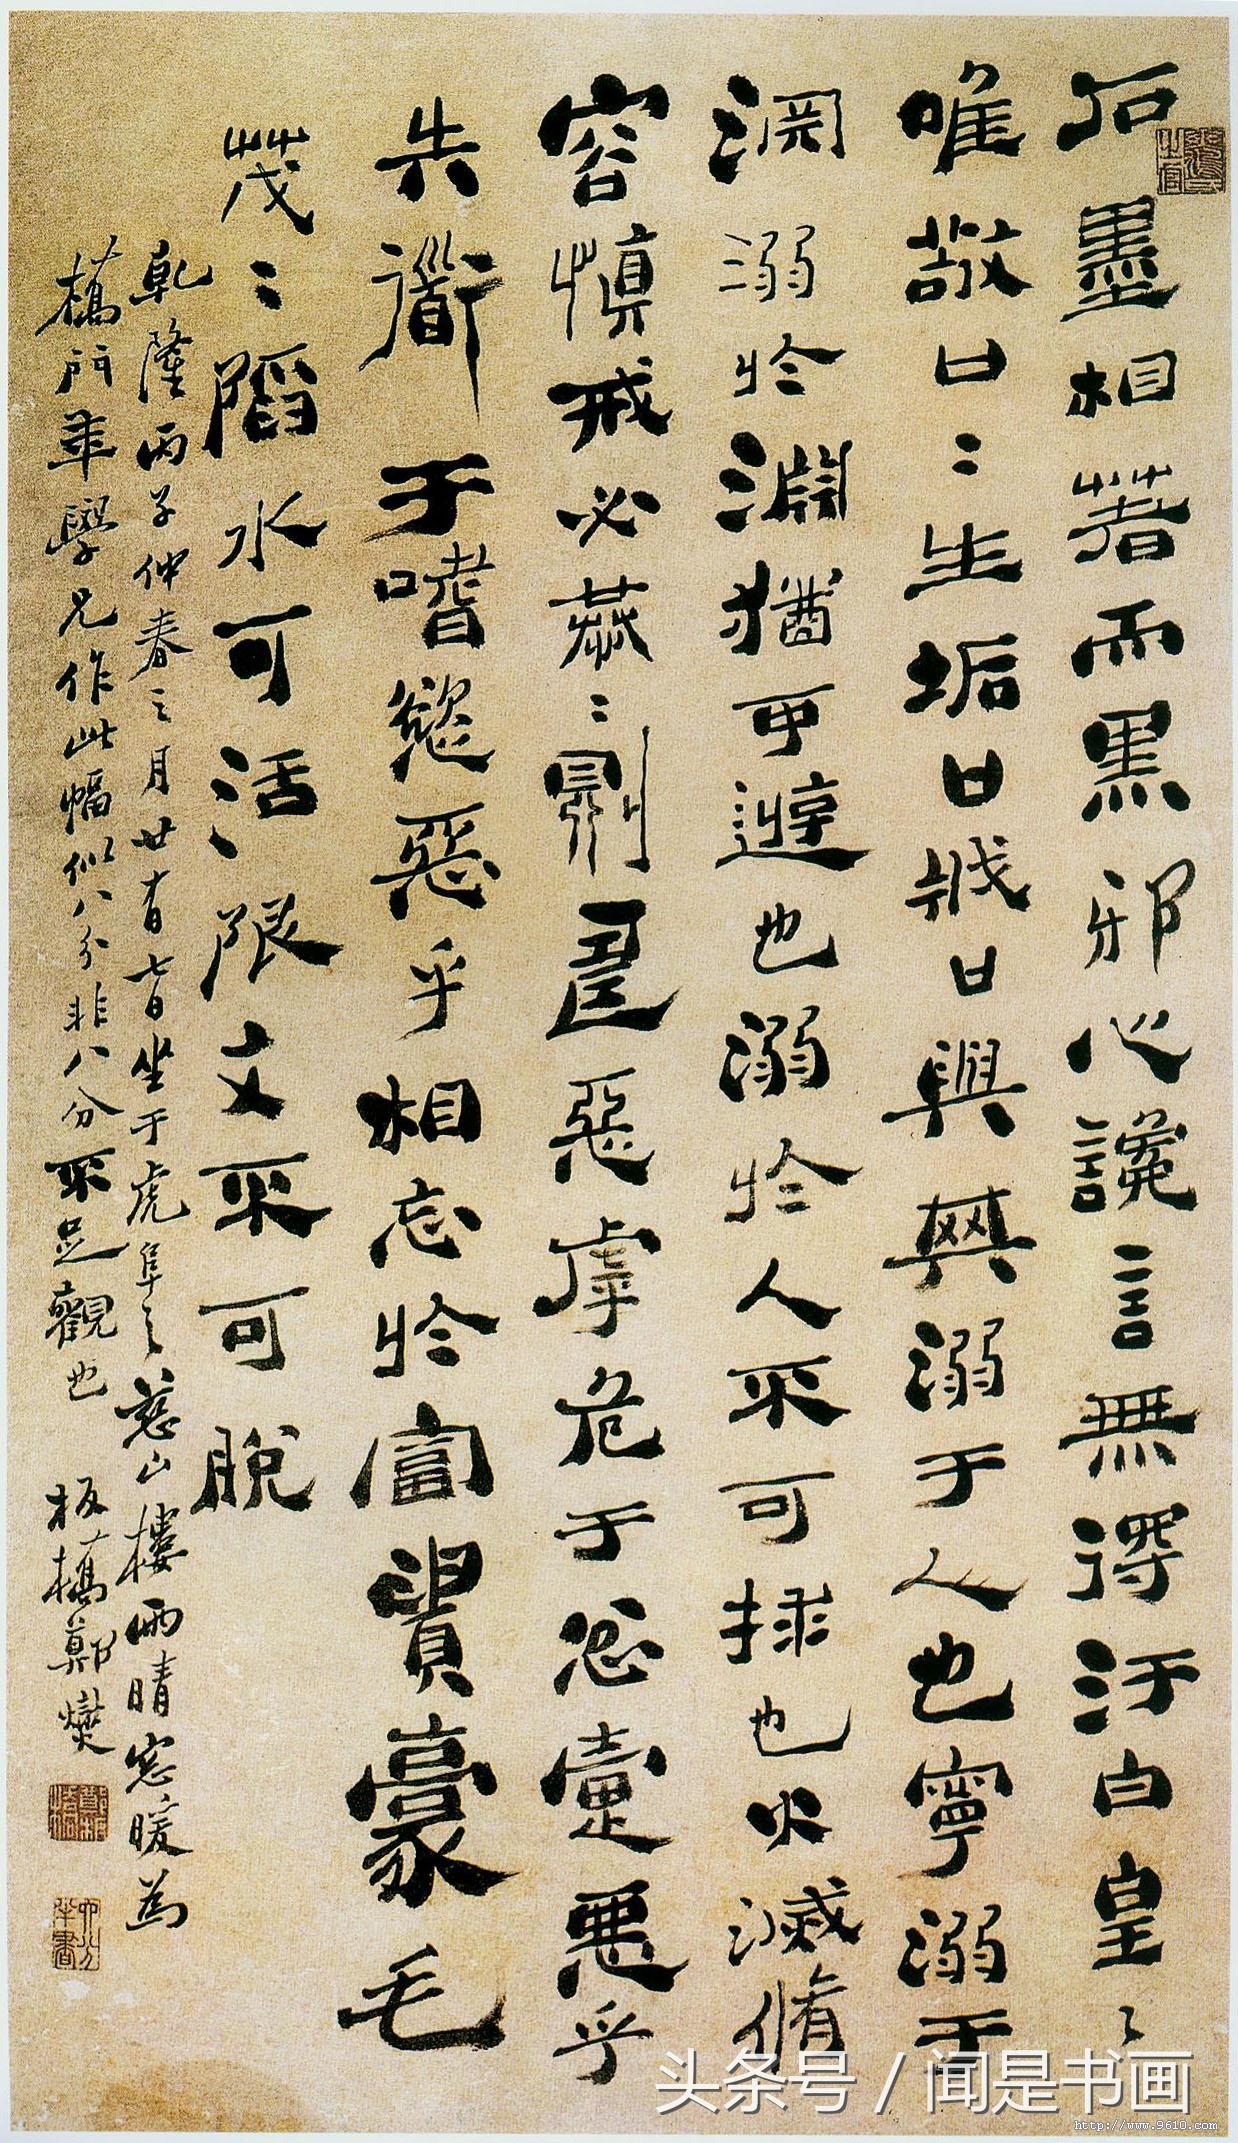 石墨相著而黑邪心讒言無得汙白皇〻
唯敬口〻生垢口戕口與其溺于人也寧溺于
淵溺於淵猶可遊也溺於人不可救也火滅脩
容慎戒必恭〻則壽惡虖危于忿疐惡乎
失道于嗜慾惡乎相忘於富貴豪毛
茂〻陷水可活陷文不可脫
乾隆丙子仲春之月廿有七日坐于虎阜之慈山樓雨晴窓暖為
橋門年學兄作此幅似八分非八分不足觀也 板橋鄭燮
头条号 / 闻是书画
http://www.9610.com